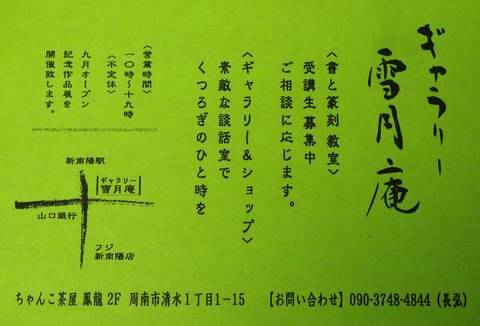 ギャラリー
雪月庵
〈書と篆刻教室〉
受講生募集中
ご相談に応じます。
〈ギャラリー&ショップ〉
素敵な談話室で
くつろぎのひと時を
〈営業時間〉
一〇時〜十九時
〈不定休〉
九月オープン
記念作品展を
開催致します。
新南陽駅
ギャラリー
雪月庵
山口銀行
フジ
新南陽店
ちゃんこ茶屋 鳳龍 2F 周南市清水1丁目1-15 【お問い合わせ】 090-3748-4844 (長弘)